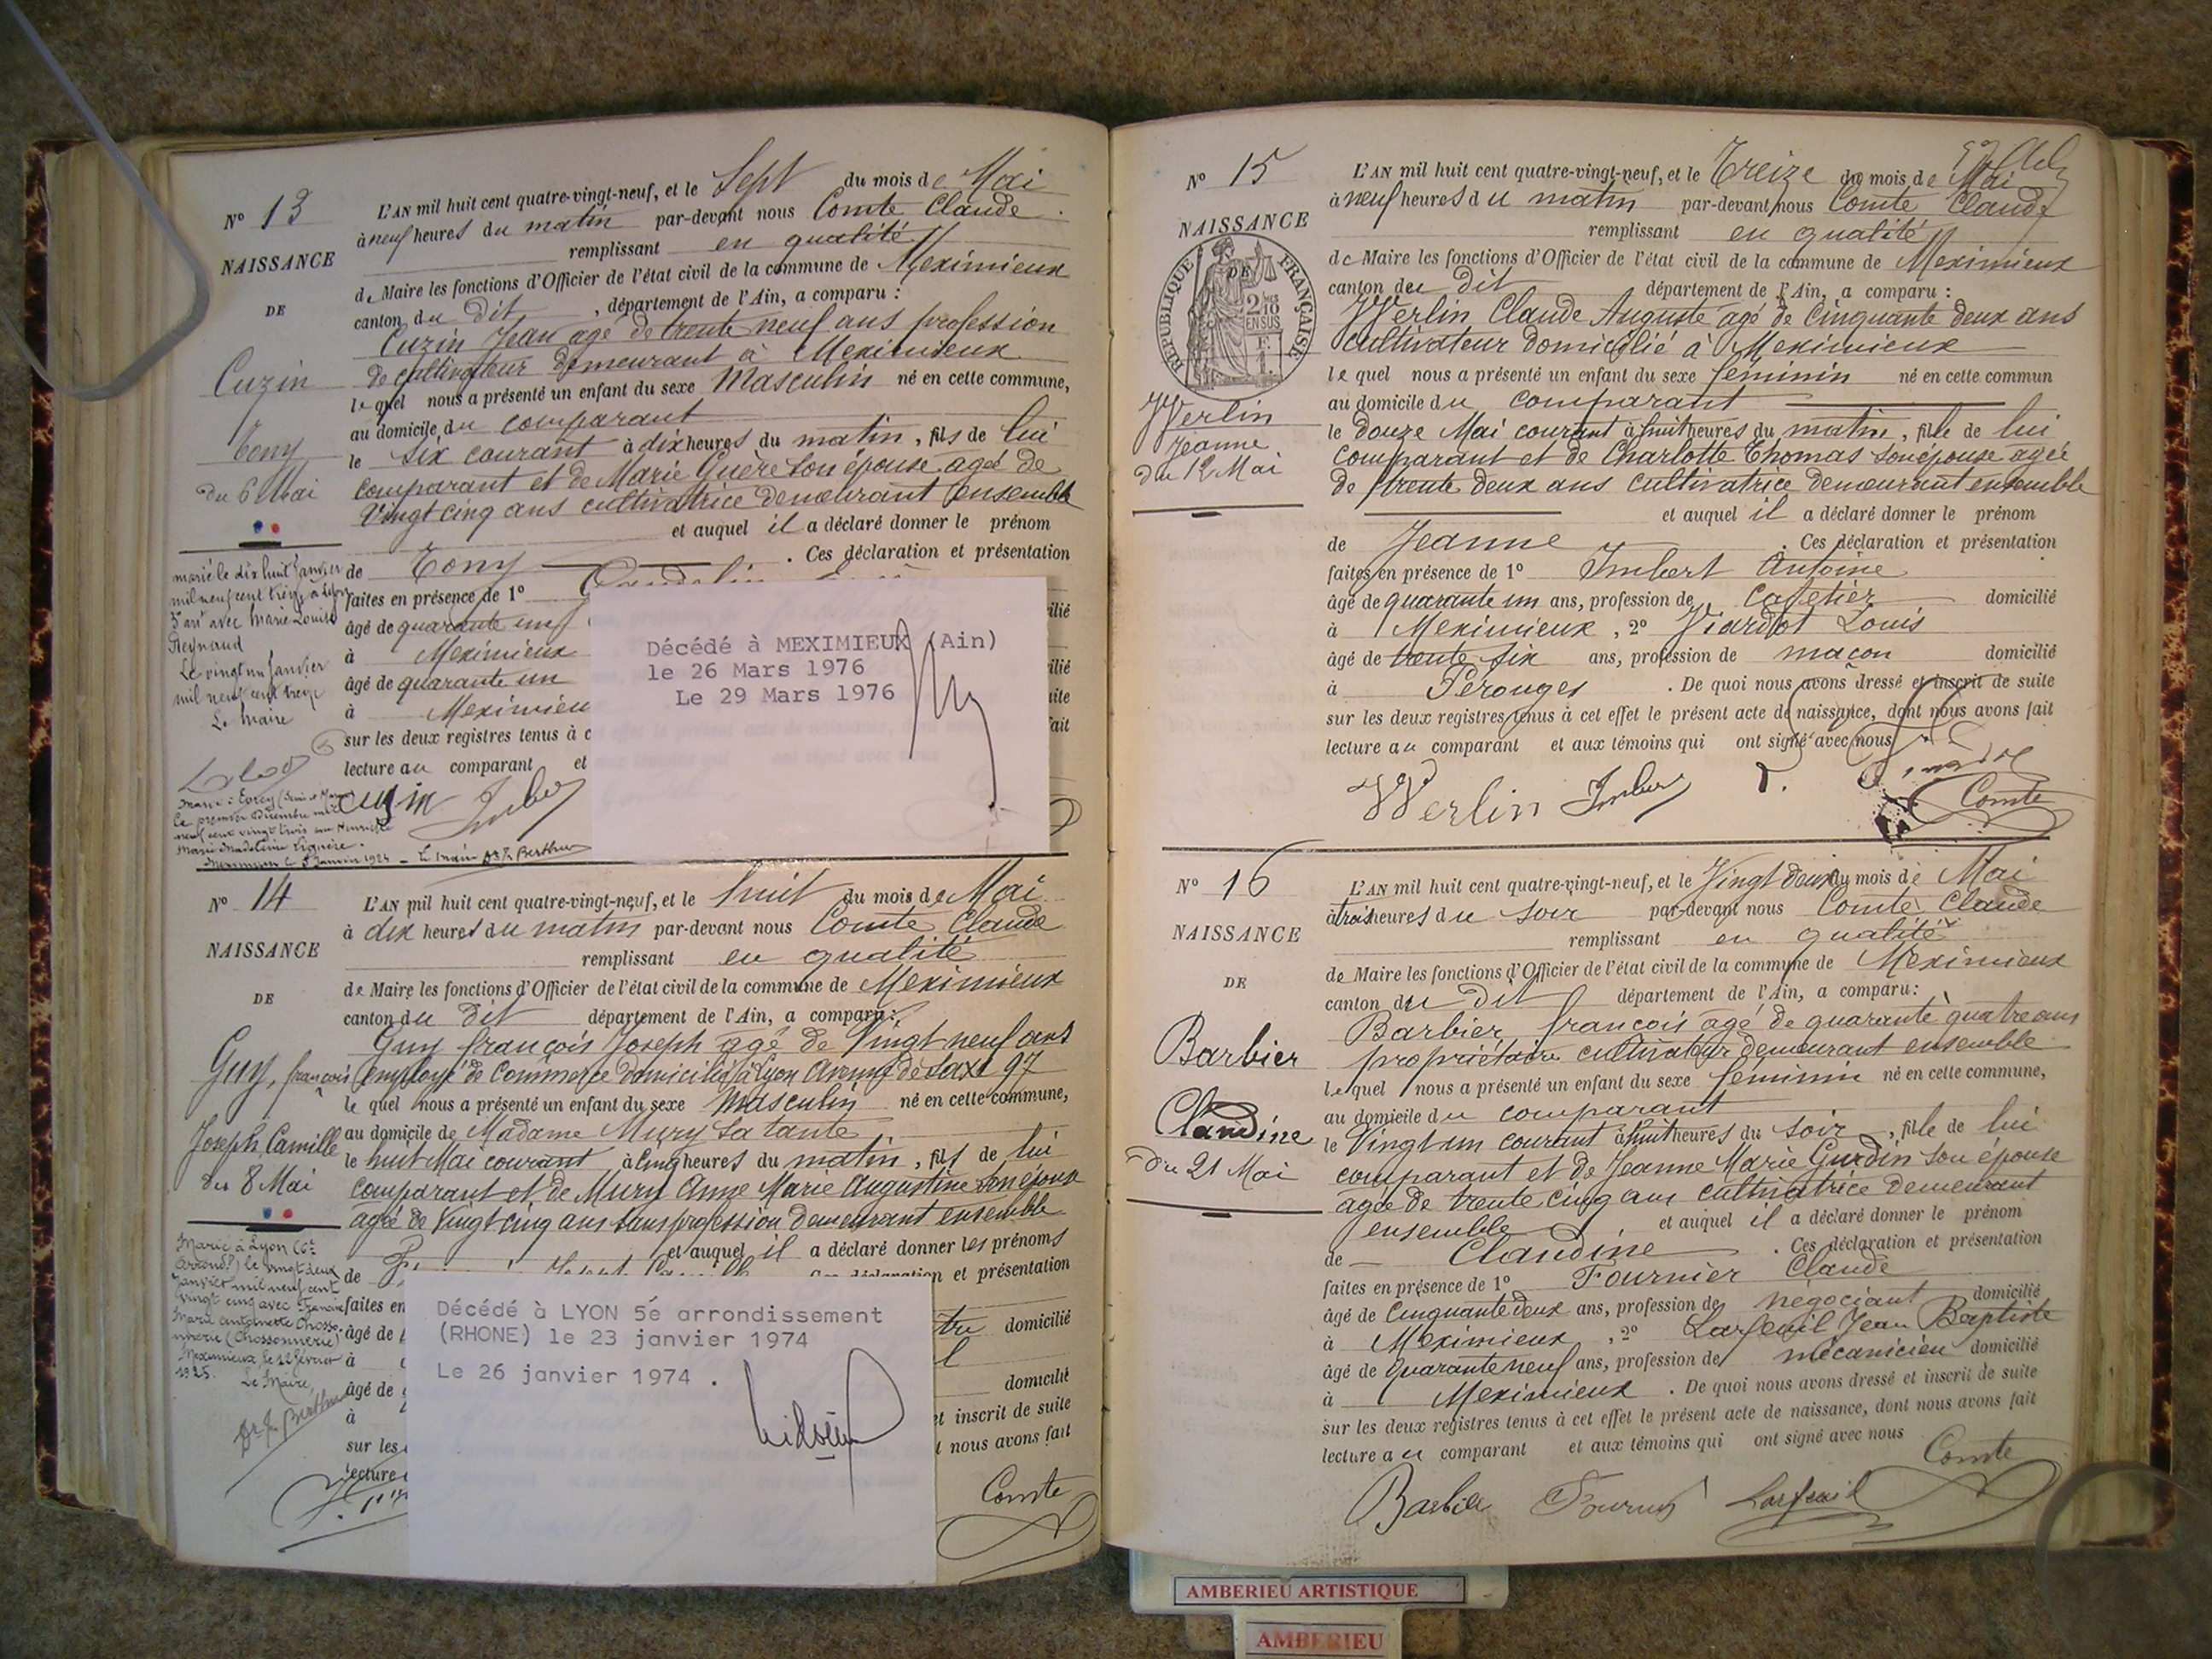 N° 13
NAISSANCE
DE
Cuzin
Tony
du 6 Mai
marié le dix huit Janvier
mil neuf cent treize à Lyon
3e arrt avec Marie Louise
Reynaud
Le vingt un Janvier
mil neuf cent treize
Le Maire
L'AN mil huit cent quatre-vingt-neuf, et le Sept du mois de Mai
à neuf heures du matin par-devant nous Comte Claude
remplissant en qualité
de Maire les fonctions d'Officier de l'état civil de la commune de Meximieux
canton du dit, département de l'Ain, a comparu :
Cuzin Jean agé de trente neuf ans profession
de cultivateur demeurant à Meximieux
lequel nous a présenté un enfant du sexe Masculin né en cette commune,
au domicile du comparant
le six courant à dix heures du matin, fils de lui
comparant et de Marie Guère son épouse agée de
Vingt cinq ans cultivatrice demeurant ensemble
et auquel il a déclaré donner le prénom
de Tony . Ces déclaration et présentation
faites en présence de 1°
âgé de quarante un
à Meximieux
âgé de quarante un
à Meximieu
sur les deux registres tenus à c
lecture au comparant et
Décédé à MEXIMIEUX (Ain)
le 26 Mars 1976
Le 29 Mars 1976
ilié
ilié
uite
fait
Cuzin Imber
Marié à Evry (Seine et Marne)
le premier décembre mil
neuf cent vingt trois avec Henriette
Marie Madeleine
Meximieux le 5 Janvier 1924 - Le Maire Dr J. Berthier
N° 14
NAISSANCE
DE
Guy, françois
Joseph, Camille
du 8 Mai
Marié à Lyon (6e
arrond.) le vingt deux
Janvier mil neuf cent
vingt cinq avec Francine
Marie Antoinette
(Chossonnerie)
Meximieux, le 12 février
1925.
Le Maire,
Dr J. Berthier
L'AN mil huit cent quatre-vingt-neuf, et le huit du mois de Mai
à dix heures du matin par-devant nous Comte Claude
remplissant en qualité
de Maire les fonctions d'Officier de l'état civil de la commune de Meximieux
canton du dit département de l'Ain, a comparu :
Guy françois Joseph agé de Vingt neuf ans
employé de Commerce domicilié à Lyon Avenue de Saxe 97
lequel nous a présenté un enfant du sexe Masculin né en cette commune,
au domicile de Madame Mury sa tante
le huit Mai courant à cinq heures du matin, fils de lui
comparant et de Mury Anne Marie Augustine son épouse
agée de Vingt cinq ans sans profession demeurant ensemble
et auquel il a déclaré donner les prénoms
de
et présentation
faites en
âgé de
tre domicilié
à
l
âgé de
domicilié
à
et inscrit de suite
sur les
nous avons fait
lecture
Décédé à LYON 5é arrondissement
(RHONE) le 23 janvier 1974
Le 26 janvier 1974 .
Comte
N° 15
NAISSANCE
DE
RÉPUBLIQUE FRANÇAISE
2/10
EN SUS
Werlin
Jeanne
du 12 Mai
L'AN mil huit cent quatre-vingt-neuf, et le Treize du mois de Mai
à neuf heures du matin par-devant nous Comte Claude
remplissant en qualité
de Maire les fonctions d'Officier de l'état civil de la commune de Meximieux
canton du dit département de l'Ain, a comparu :
Werlin Claude Auguste agé de Cinquante deux ans
cultivateur domicilié à Meximieux
lequel nous a présenté un enfant du sexe féminin né en cette commun
au domicile du comparant
le douze Mai courant à huit heures du matin, fille de lui
comparant et de Charlotte Thomas son épouse agée
de trente deux ans cultivatrice demeurant ensemble
et auquel il a déclaré donner le prénom
de Jeanne . Ces déclaration et présentation
faites en présence de 1° Imbert Antoine
âgé de quarante un ans, profession de Cafetier domicilié
à Meximieux, 2° Viardot Louis
âgé de trente six ans, profession de maçon domicilié
à Pérouges . De quoi nous avons dressé et inscrit de suite
sur les deux registres tenus à cet effet le présent acte de naissance, dont nous avons fait
lecture au comparant et aux témoins qui ont signé avec nous
Werlin Imber Comte
N° 16
NAISSANCE
DE
Barbier
Claudine
du 21 Mai
L'AN mil huit cent quatre-vingt-neuf, et le Vingt deux du mois de Mai
à trois heures du soir par-devant nous Comte Claude
remplissant en qualité
de Maire les fonctions d'Officier de l'état civil de la commune de Meximieux
canton du dit département de l'Ain, a comparu :
Barbier françois agé de quarante quatre ans
propriétaire cultivateur demeurant ensemble
lequel nous a présenté un enfant du sexe féminin né en cette commune,
au domicile du comparant
le Vingt un courant à huit heures du soir, fille de lui
comparant et de Jeanne Marie Gurdin son épouse
agée de trente cinq ans cultivatrice demeurant
ensemble et auquel il a déclaré donner le prénom
de Claudine . Ces déclaration et présentation
faites en présence de 1° Fournier Claude
âgé de Cinquante deux ans, profession de négociant domicilié
à Meximieux, 2° Larfeuil Jean Baptiste
âgé de quarante neuf ans, profession de mécanicien domicilié
à Meximieux . De quoi nous avons dressé et inscrit de suite
sur les deux registres tenus à cet effet le présent acte de naissance, dont nous avons fait
lecture au comparant et aux témoins qui ont signé avec nous
Comte
Barbier Fournier Larfeuil
AMBERIEU ARTISTIQUE
AMBERIEU